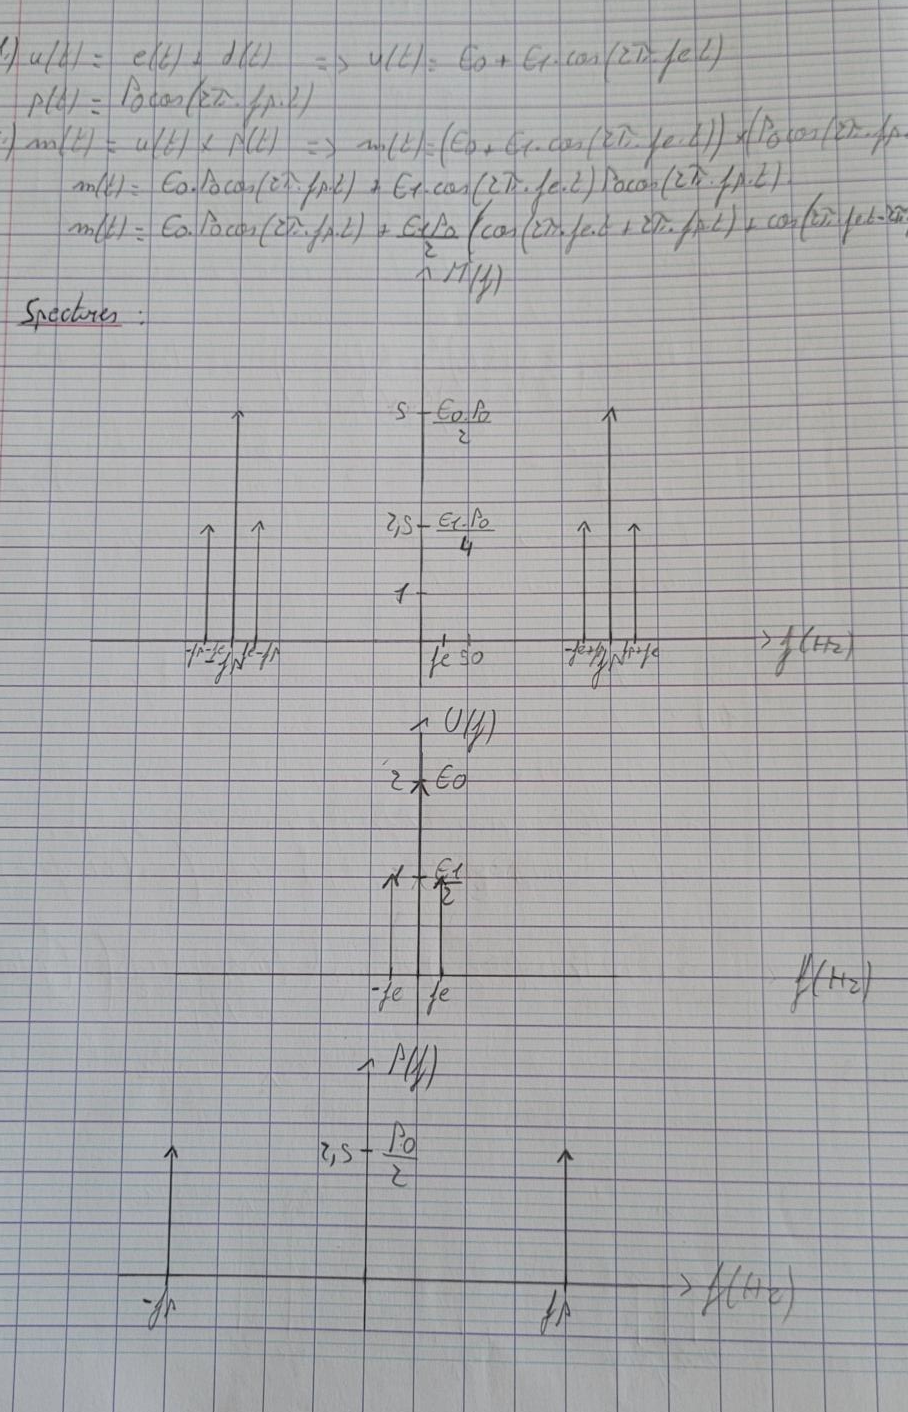 1.) u(t) = e(t) + d(t) => u(t) = E0 + E1.cos(2π.fe.t)
p(t) = P0cos(2π.fp.t)
.) m(t) = u(t) x p(t) => m(t) = (E0 + E1.cos(2π.fe.t)) x (P0cos(2π.fp.
m(t) = E0.P0cos(2π.fp.t) + E1.cos(2π.fe.t) P0cos(2π.fp.t)
m(t) = E0.P0cos(2π.fp.t) + E1P0/2 (cos(2π.fe.t + 2π.fp.t) + cos(2π.fet-2π
M(f)
Spectres :
5 E0.P0/2
2,5 E1.P0/4
1
-fp-fe -fp fe-fp fe 50 -fe+fp fp fp+fe f(Hz)
U(f)
2 E0
1 E1/2
-fe fe f(Hz)
P(f)
2,5 P0/2
-fp fp f(Hz)